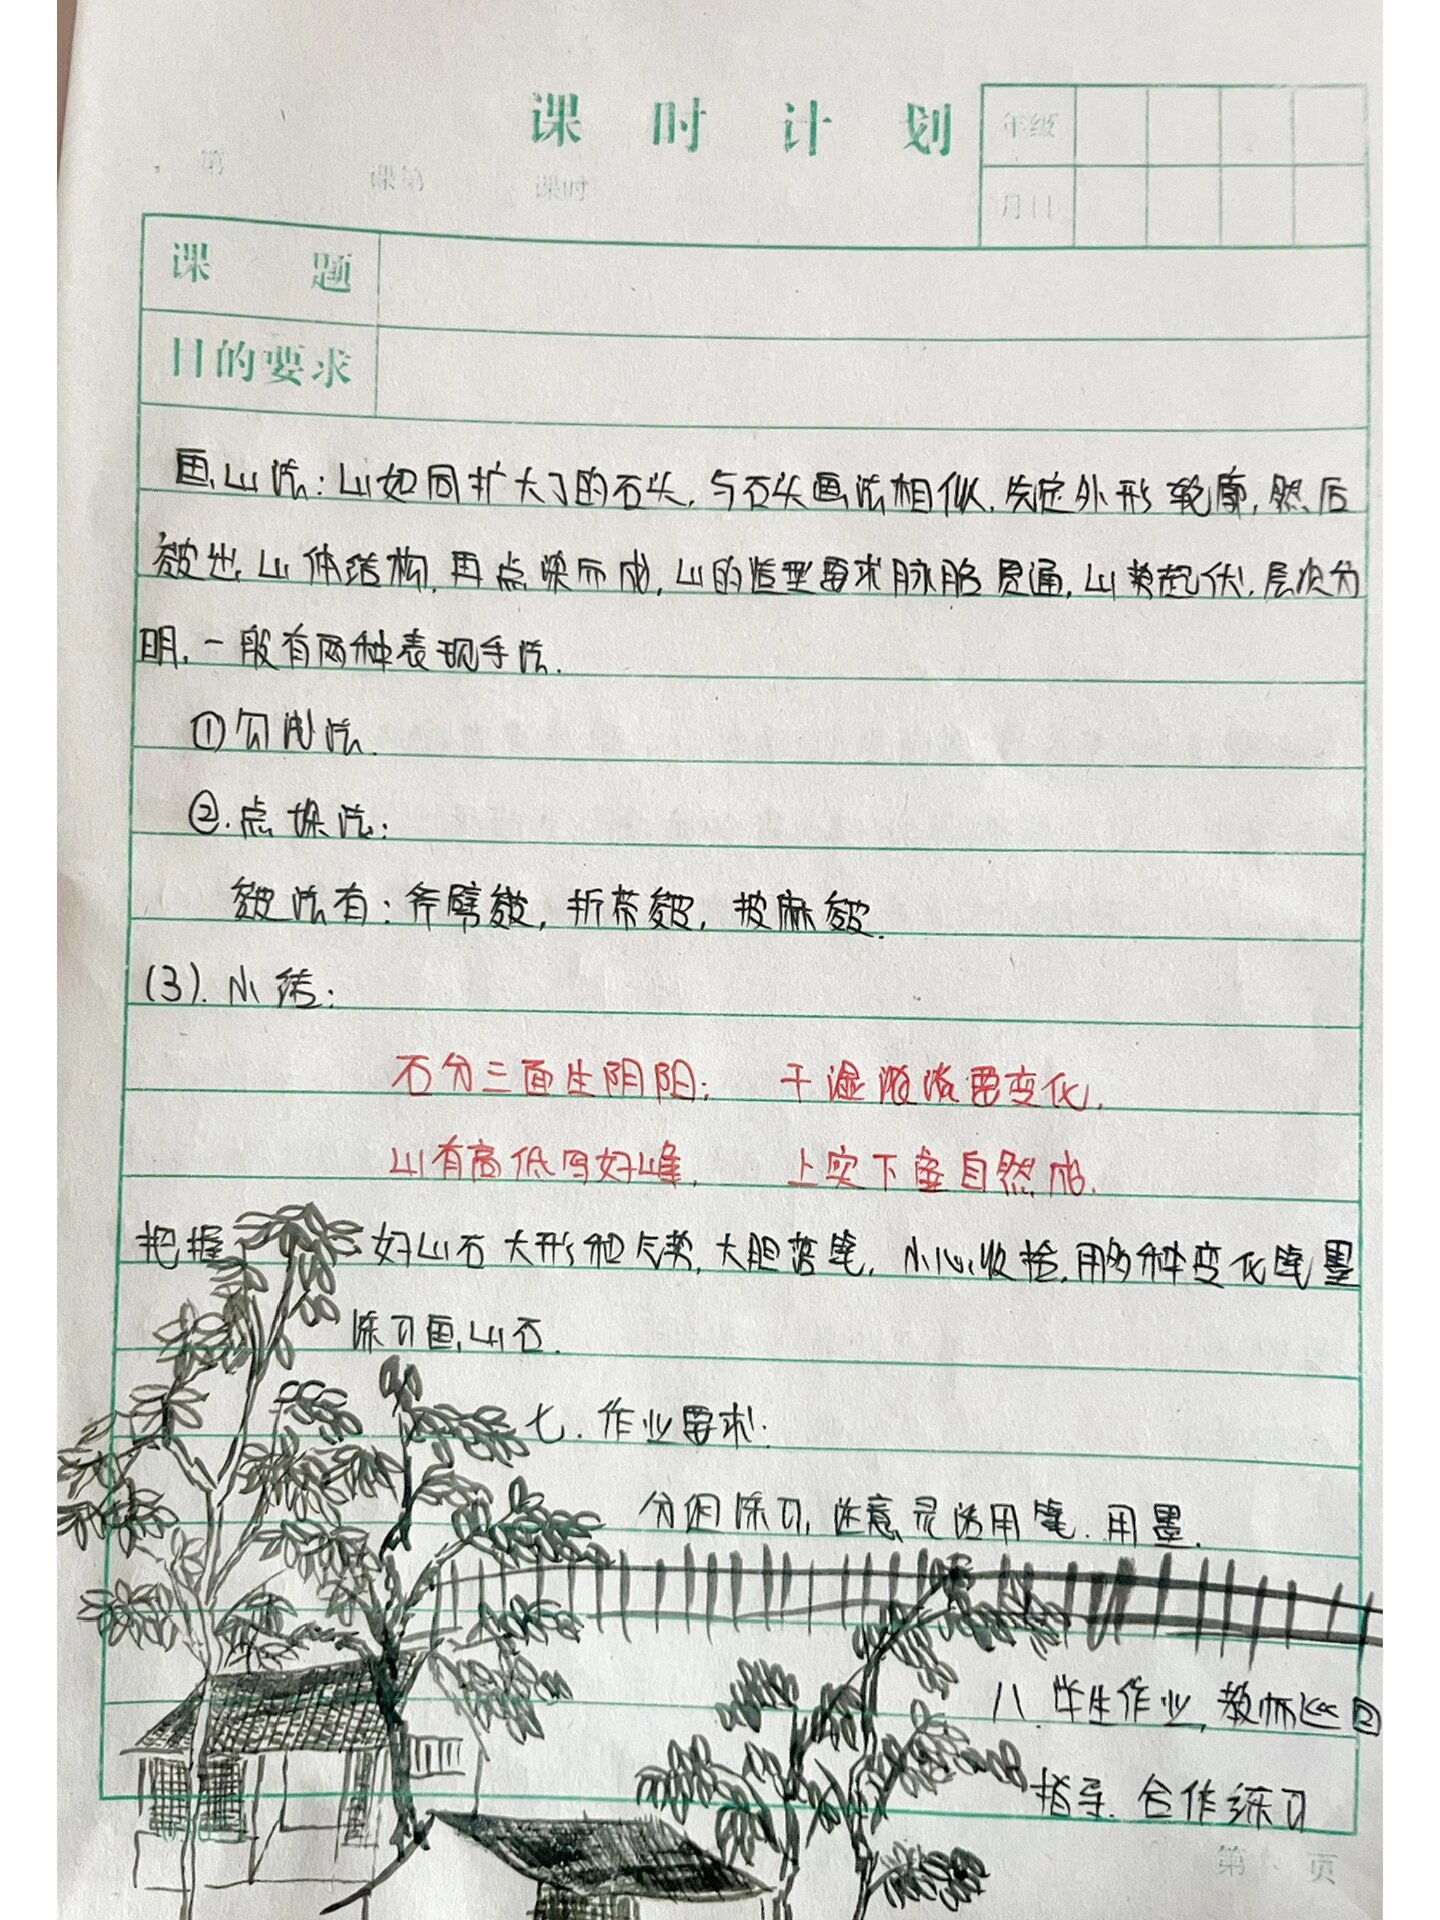 课时计划
年级
第 课第 课时
月日
课题
目的要求
画山法：山如同扩大了的石头，与石头画法相似，先定外形轮廓，然后
皴出山体结构，再点染而成，山的造型要求脉胳贯通，山势起伏，层次分
明，一般有两种表现手法.
①勾皴法.
②.点垛法：
皴法有：斧劈皴，折带皴，披麻皴.
(3).小结：
石分三面生阴阳； 干湿浓淡要变化.
山有高低写好峰， 上实下虚自然成.
把握好山石大形和气势，大胆落笔，小心收拾，用多种变化笔墨
练习画山石.
七.作业要求：
分组练习，注意灵活用笔.用墨.
八.学生作业，教师巡回
指导.合作练习
第 页